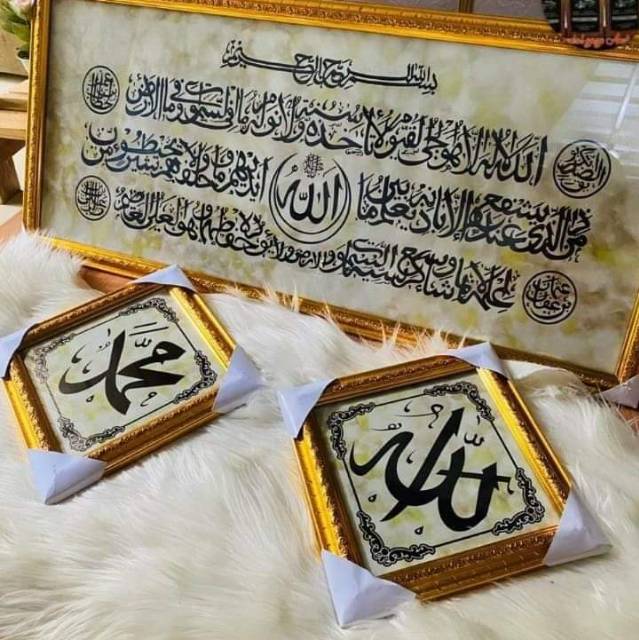 بسم الله الرحمن الرحيم
الله لا إله إلا هو الحي القيوم لا تأخذه سنة ولا نوم له ما في السموات وما في الأرض
من ذا الذي يشفع عنده إلا بإذنه يعلم ما بين أيديهم وما خلفهم ولا يحيطون بشيء من
الله
علمه إلا بما شاء وسع كرسيه السموات والأرض ولا يؤده حفظهما وهو العلي العظيم
عثمان بن عفان
محمد
الله